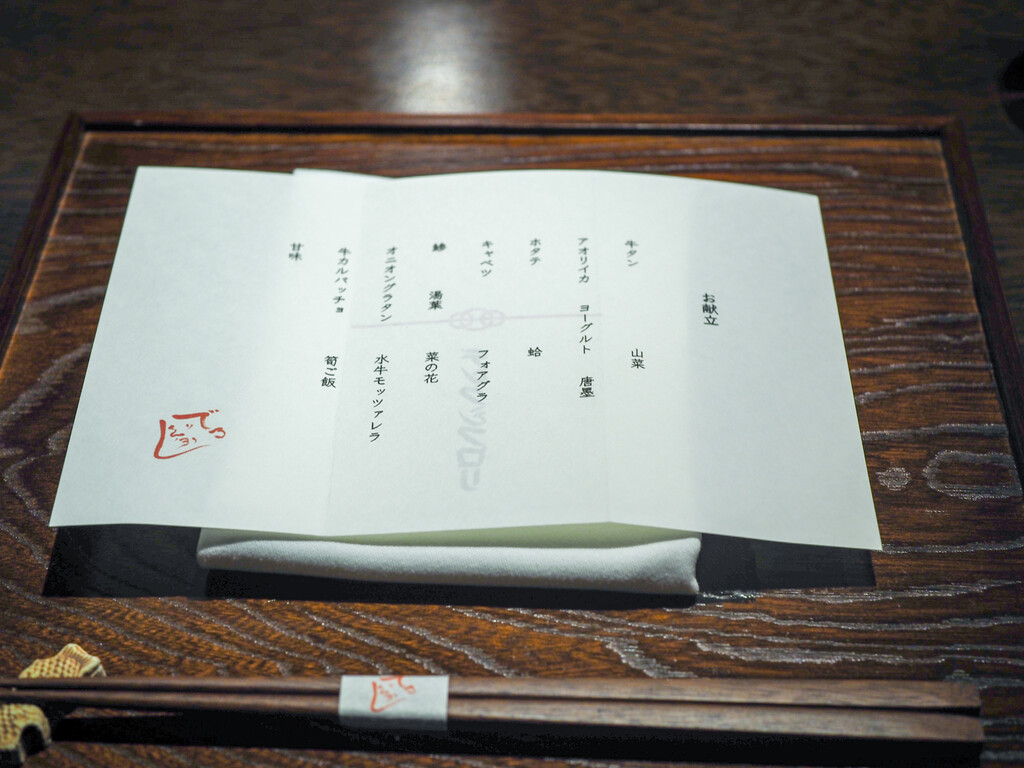 お献立
牛タン 山菜
アオリイカ ヨーグルト 唐墨
ホタテ 蛤
キャベツ フォアグラ
鯵 湯葉 菜の花
オニオングラタン 水牛モッツァレラ
牛カルパッチョ 筍ご飯
甘味